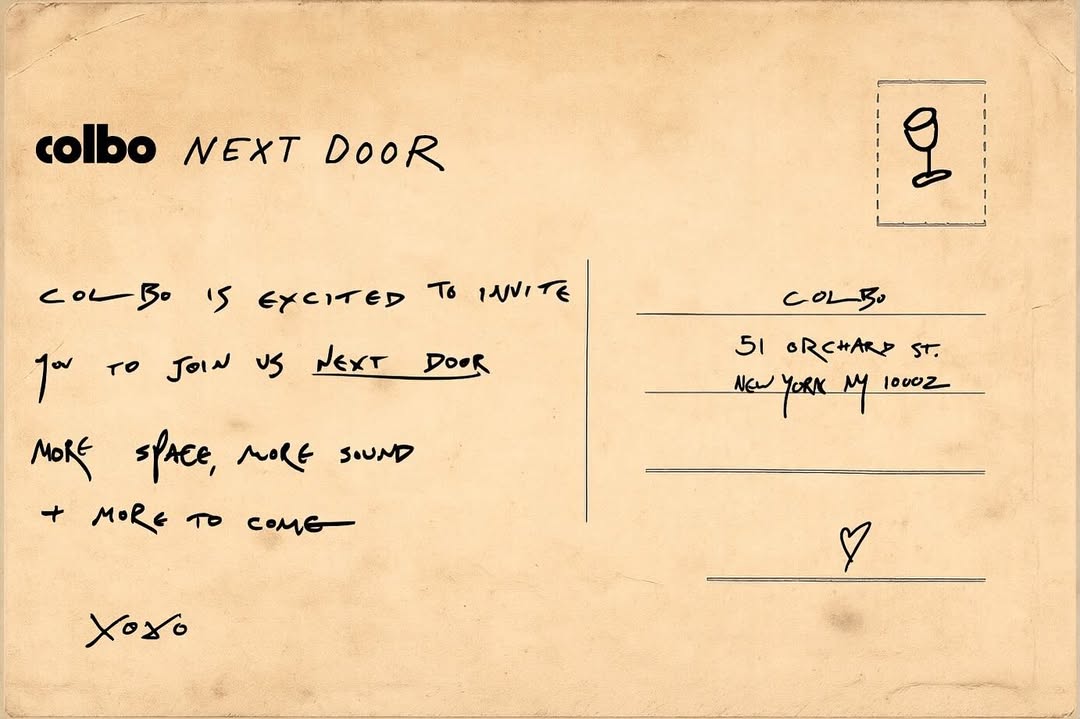 colbo NEXT DOOR
COLBO IS EXCITED TO INVITE
YOU TO JOIN US NEXT DOOR
MORE SPACE, MORE SOUND
+ MORE TO COME
XOXO
COLBO
51 ORCHARD ST.
NEW YORK NY 10002